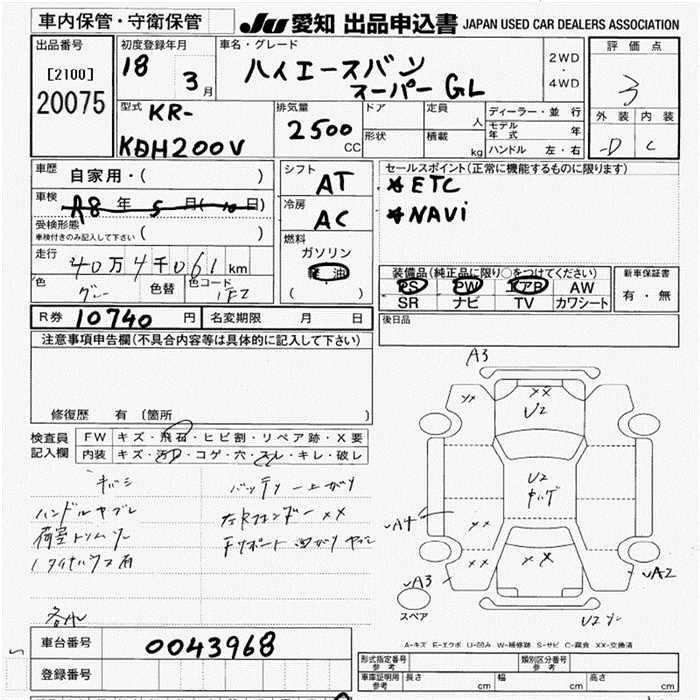 車内保管・守衛保管 JU 愛知 出品申込書 JAPAN USED CAR DEALERS ASSOCIATION
出品番号 [2100] 20075
初度登録年月 18 3月
車名・グレード ハイエースバン スーパーGL
2WD・4WD
評価点 3
外装 内装
-D C
型式 KR-KDH200V
排気量 2500 CC
ドア 形状
定員 人
積載 kg
ディーラー・並行
モデル年式 年
ハンドル 左・右
車歴 自家用・( )
車検 R8年 5月(10日)
受検形態 車検付きのみ記入して下さい ( )
走行 40万4千061 km
色 グレー 色替 色コード 1E7
シフト AT
冷房 AC
燃料 ガソリン 軽油 ( )
セールスポイント(正常に機能するものに限ります)
*ETC
*NAVi
装備品(純正品に限り○をつけてください)
PS PW エアB AW
SR ナビ TV カワシート
新車保証書 有・無
R券 10740 円 名変期限 月 日
後日品
注意事項申告欄(不具合内容等は具体的に記入して下さい)
修復歴 有 〔箇所 〕
検査員記入欄
FW キズ・飛石・ヒビ割・リペア跡・X要
内装 キズ・汚れ・コゲ・穴・スレ・キレ・破レ
キバミ バッテリー上がり
ハンドルヤブレ 左Rフェンダー XX
A3
XX
XX
U2
U2
キハゲ
A4
XX
XX
XX
A3
A2
U2
スペア
A-キズ E-エクボ U-凹み W-補修跡 S-サビ C-腐食 XX-交換済
車台番号 0043968
登録番号
形式指定番号 参考
類別区分番号 参考
車庫証明用 参考 長さ cm 幅 cm 高さ cm